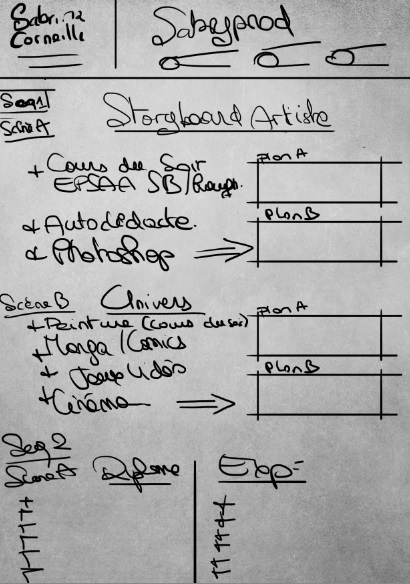 Sabrina
Corneille
Sabyprod
Seq1
Scène A
Storyboard Artiste
+ Cours du Soir
EPSAA SB/Rough.
Plan A
+ Autodidacte.
+ Photoshop
Plan B
Scène B
Univers
+ Peinture (Cours du soir)
+ Manga/Comics
+ Jeux Vidéos
+ Cinéma
Plan A
Plan B
Seq 2
Scène A
Diplome
Exp=